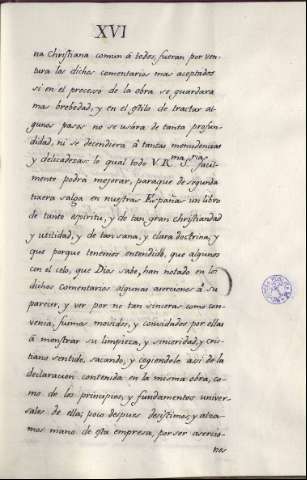 XVI
na Christiana comun á todos, fueran por ven-
tura los dichos comentarios mas aceptados
si en el proceso de la obra se guardara
mas brebedad, y en el estilo de tractar al-
gunos pasos no se usára de tanta profun-
didad, ni se decendiera á tantas menudencias
y delicadezas: lo qual todo V. R.ma S.ria facil-
mente podrá mejorar, paraque de segunda
tixera salga en nuestras Españas un libro
de tanto espiritu, y de tan gran christiandad
y utilidad, y de tan sana, y clara doctrina; y
que porque tenemos entendido, que algunos
con el celo, que Dios sabe, han notado en los
dichos Comentarios algunas aserciones á su
parecer, y ver por no tan sinceras como con-
venia, fuimos movidos, y convidados por ellas
á monstrar su limpieza, y sinceridad, y cris-
tiano sentido, sacando, y cogiendolo asi de la
declaracion contenida en la misma obra, co-
mo de los principios, y fundamentos univer-
sales de ella; poco despues desistimos, y alza-
mos mano de esta empresa, por ser asercio-
nes